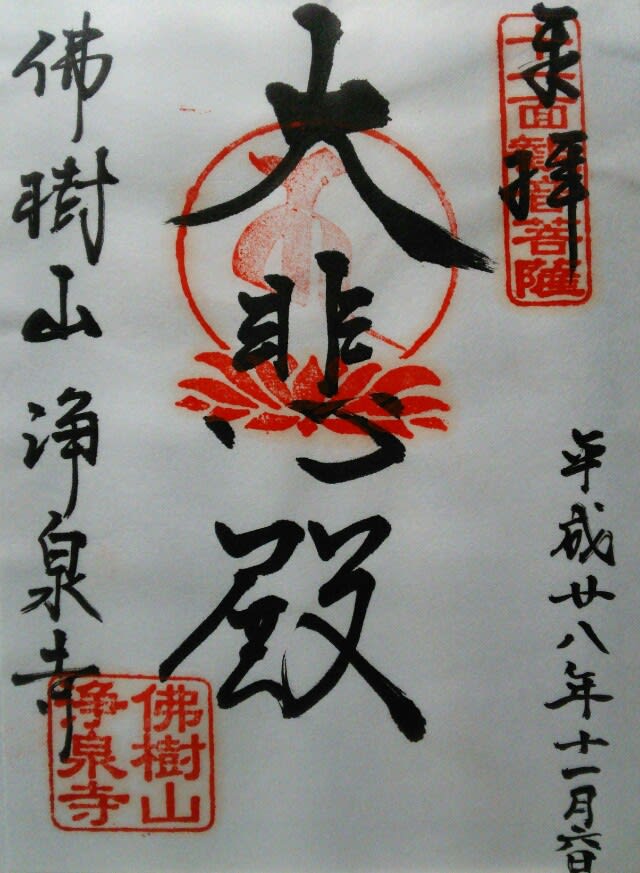 奉拝
十一面観音菩薩
平成廿八年十一月六日
大悲殿
佛樹山 浄泉寺
佛樹山
浄泉寺